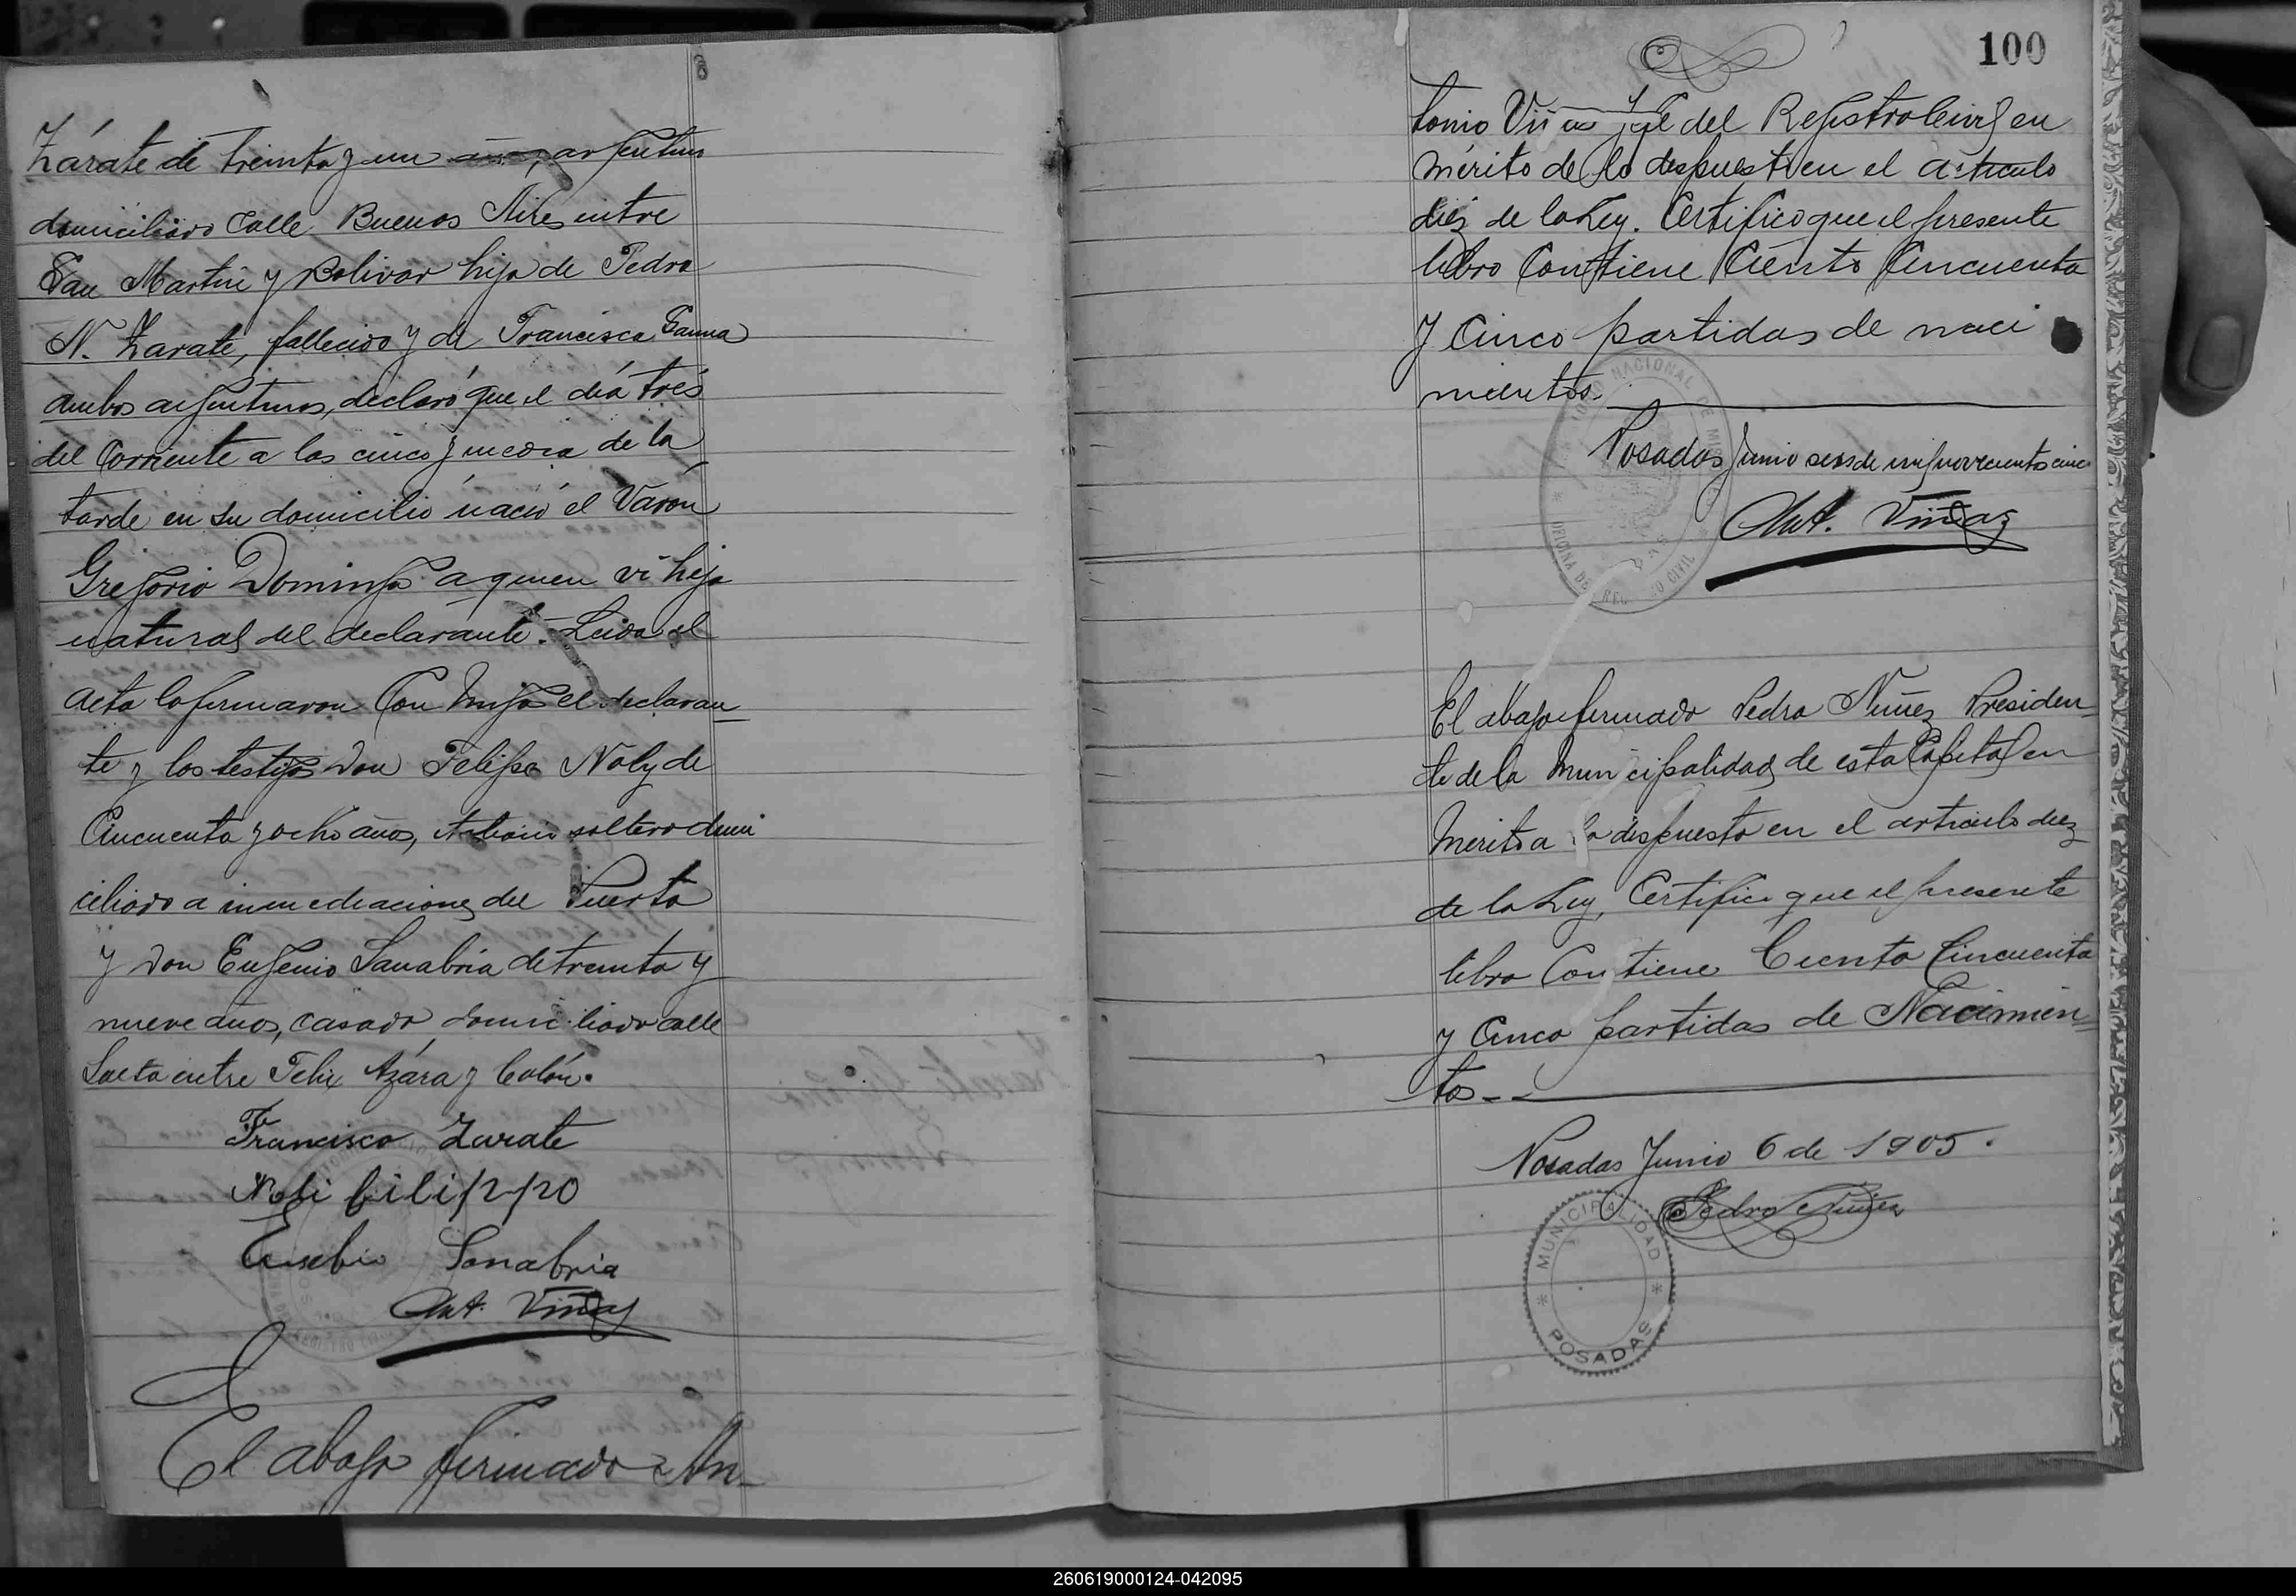 Zárate de treinta y un años, argentino
domiciliado Calle Buenos Aires entre
San Martin y Bolivar hijo de Pedro
N. Zarate, fallecido y de Francisca
ambos argentinos, declaró que el día tres
del Corriente a las cinco y media de la
tarde en su domicilio nació el Varon
Gregorio Domingo a quien vi hijo
natural del declarante. Leida el
acta la firmaron Con migo el declaran
te y los testigos Don Felipe Noly de
Cincuenta y ocho años, soltero domi
ciliado a inmediaciones del Puerto
y Don Eugenio Sanabria de treinta y
nueve años, casado domiciliado calle
entre Felix Azára y Colón.
Francisco Zarate
Noli
Eusebio Sanabria
Ant. Viñas
El abajo firmado An-
100
tonio Viñas del Registro Civil en
mérito de lo dispuesto en el articulo
diez de la Ley. Certifico que el presente
libro Contiene Ciento Cincuenta
y Cinco partidas de naci
mientos.
Posadas Junio seis de mil novecientos cinco
Ant. Viñas
NACIONAL DE
OFICINA DE CIVIL
El abajo firmado Pedro Nuñez Presiden-
te de la Municipalidad de esta Capital en
Merito a lo dispuesto en el articulo diez
de la Ley, Certifico que el presente
libro Contiene Ciento Cincuenta
y Cinco partidas de Nacimien=
tos--
Posadas Junio 6 de 1905.
Pedro Nuñez
MUNICIPALIDAD
* POSADAS *
260619000124-042095